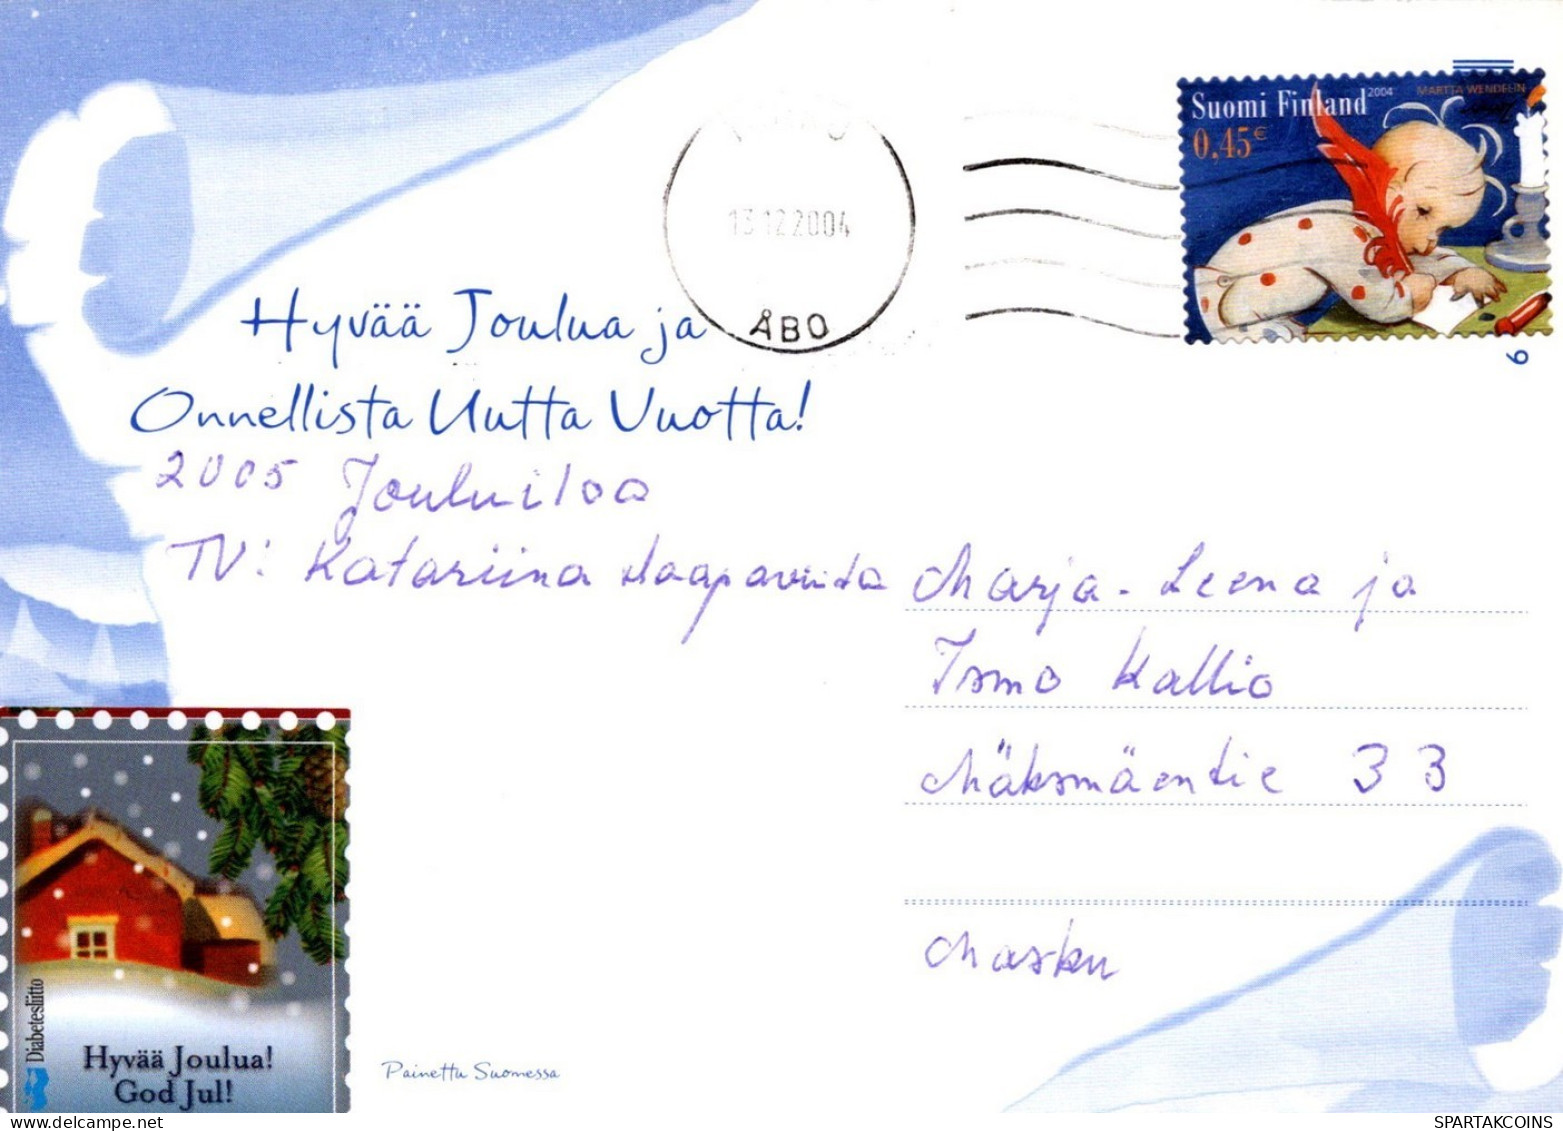 Suomi Finland 2004 MARTTA WENDELIN
0,45€
13 12 2004
ÅBO
Hyvää Joulua ja
Onnellista Uutta Vuotta!
6
2005 Jouluiloa
TV: Katariina
Marja-Leena ja
Ismo Kallio
Mäksmäentie 33
Masku
Diabetesliitto
Hyvää Joulua!
God Jul!
Painettu Suomessa
SPARTAKCOINS